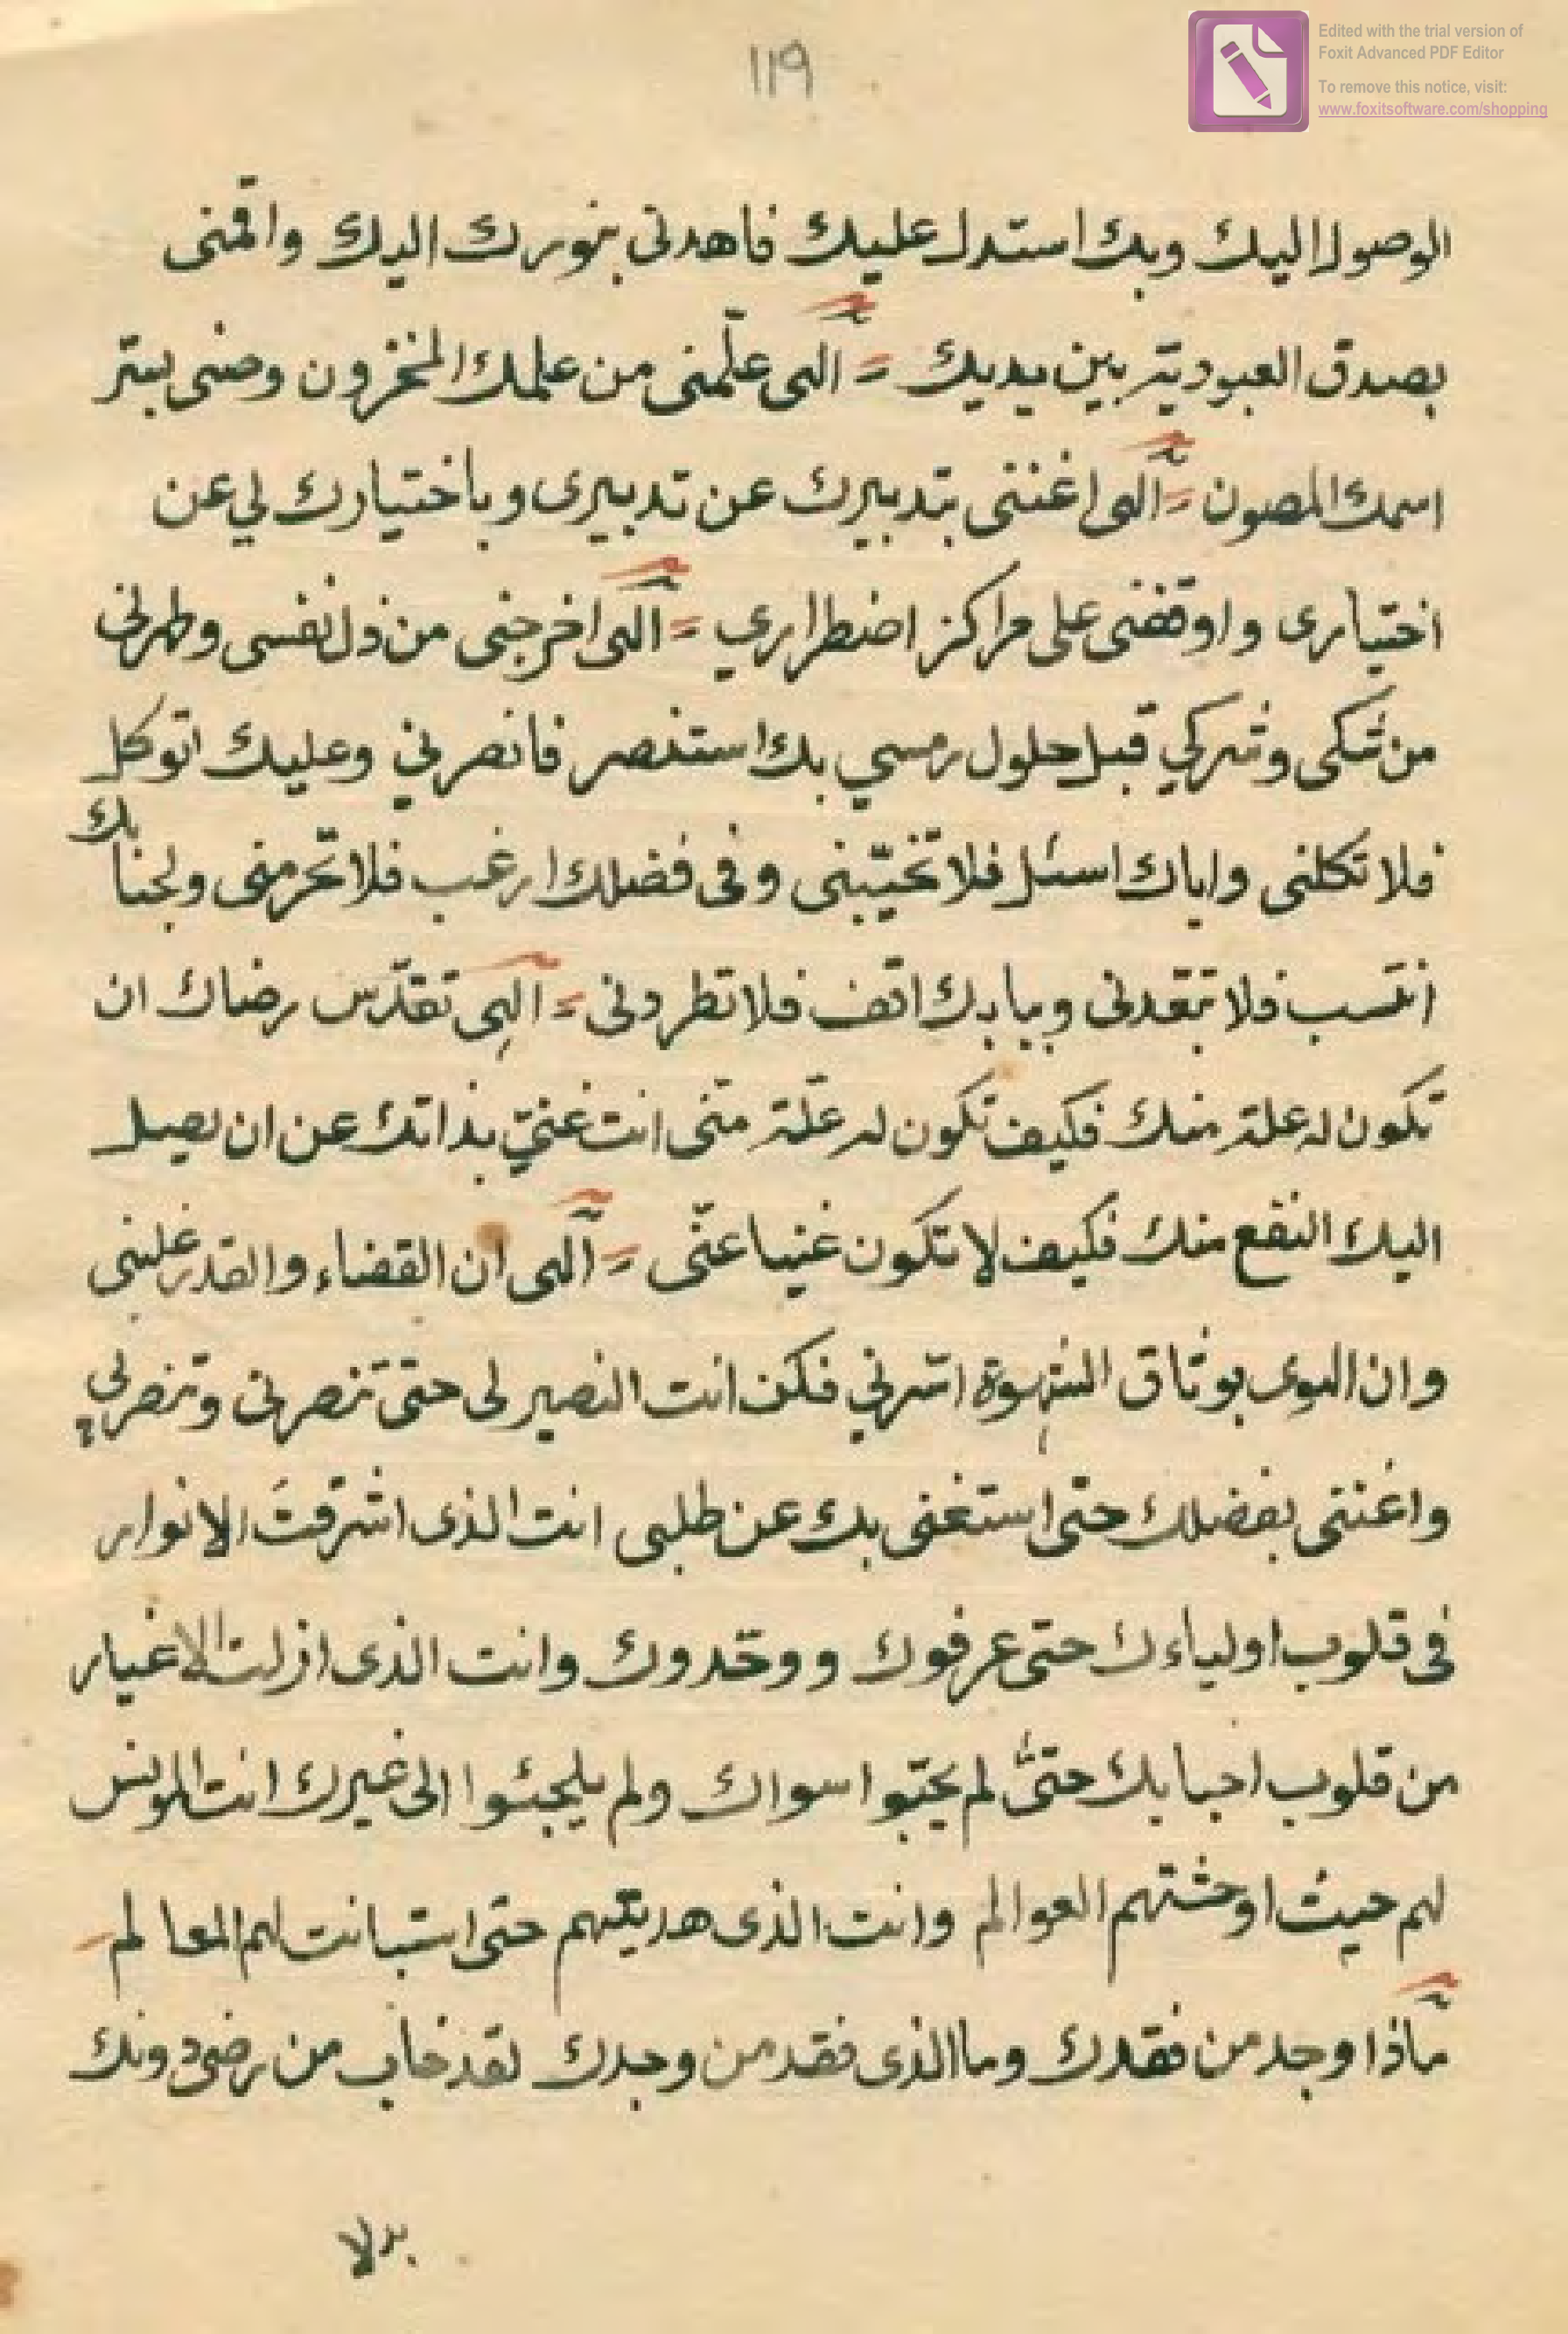 ١١٩
Edited with the trial version of
Foxit Advanced PDF Editor
To remove this notice, visit:
www.foxitsoftware.com/shopping
الوصول اليك وبك استدل عليك فاهدنى بنورك اليك واقمنى
بصدق العبودية بين يديك = الهى علّمنى من علمك المخزون وصنى بسّر
اسمك المصون = الهى اغننى بتدبيرك عن تدبيرى وباختيارك لي عن
اختيارى واوقفنى على مراكز اضطراري = الهى اخرجنى من ذل نفسى وطهرنى
من شكى وشركي قبل حلول رمسي بك استنصر فانصرني وعليك اتوكل
فلا تكلنى واياك اسئل فلا تخيّبنى وفى فضلك ارغب فلا تحرمنى ولجنابك
انتسب فلا تبعدنى وببابك اقف فلا تطردنى = الهى تقدّس رضاك ان
تكون له علة منك فكيف تكون له علّة منّى انت غنيّ بذاتك عن ان يصل
اليك النفع منك فكيف لا تكون غنيا عنّى = الهى ان القضاء والقدر غلبنى
وان الهوى بوثاق الشهوة اسّرني فكن انت النصير لى حتى تنصرنى وتنصر بى
واغننى بفضلك حتى استغنى بك عن طلبى انت الذى اشرقتَ الانوار
فى قلوب اولياءك حتى عرفوك ووحّدوك وانت الذى ازلت الاغيار
من قلوب احبابك حتىّ لم يحبّوا سواك ولم يلجئوا الى غيرك انت المونس
لهم حيث اوحشتهم العوالم وانت الذى هديتهم حتى استبانت لهم المعالم
ماذا وجد من فقدك وما الذى فقد من وجدك لقد خاب من رضى دونك
بدلا